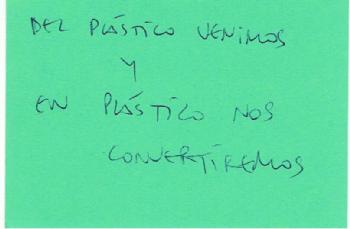 DEL PLÁSTICO VENIMOS
Y
EN PLÁSTICO NOS
CONVERTIREMOS